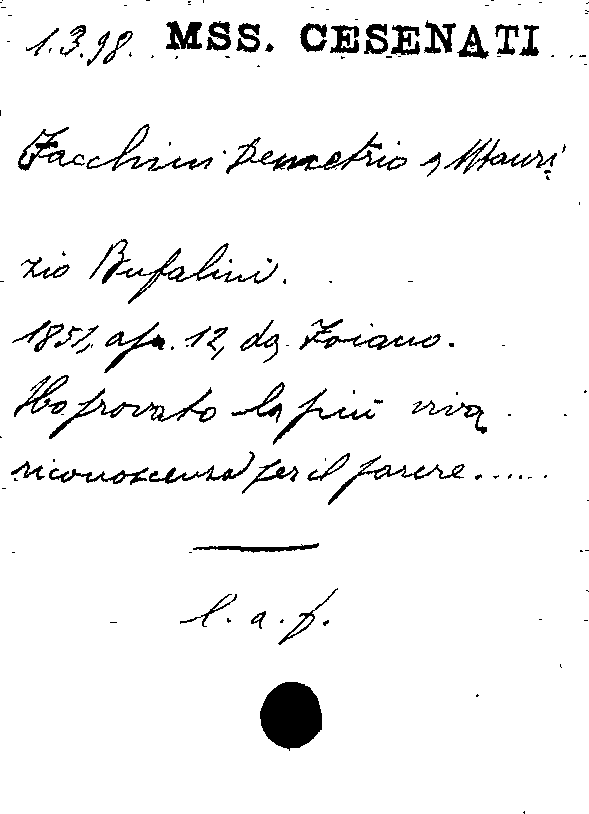 1.3.98. MSS. CESENATI
Facchini Demetrio a Mauri
zio Bufalini.
1851, apr. 12, da Foiano.
Ho provato la più viva
riconoscenza per il parere......
l. a. f.